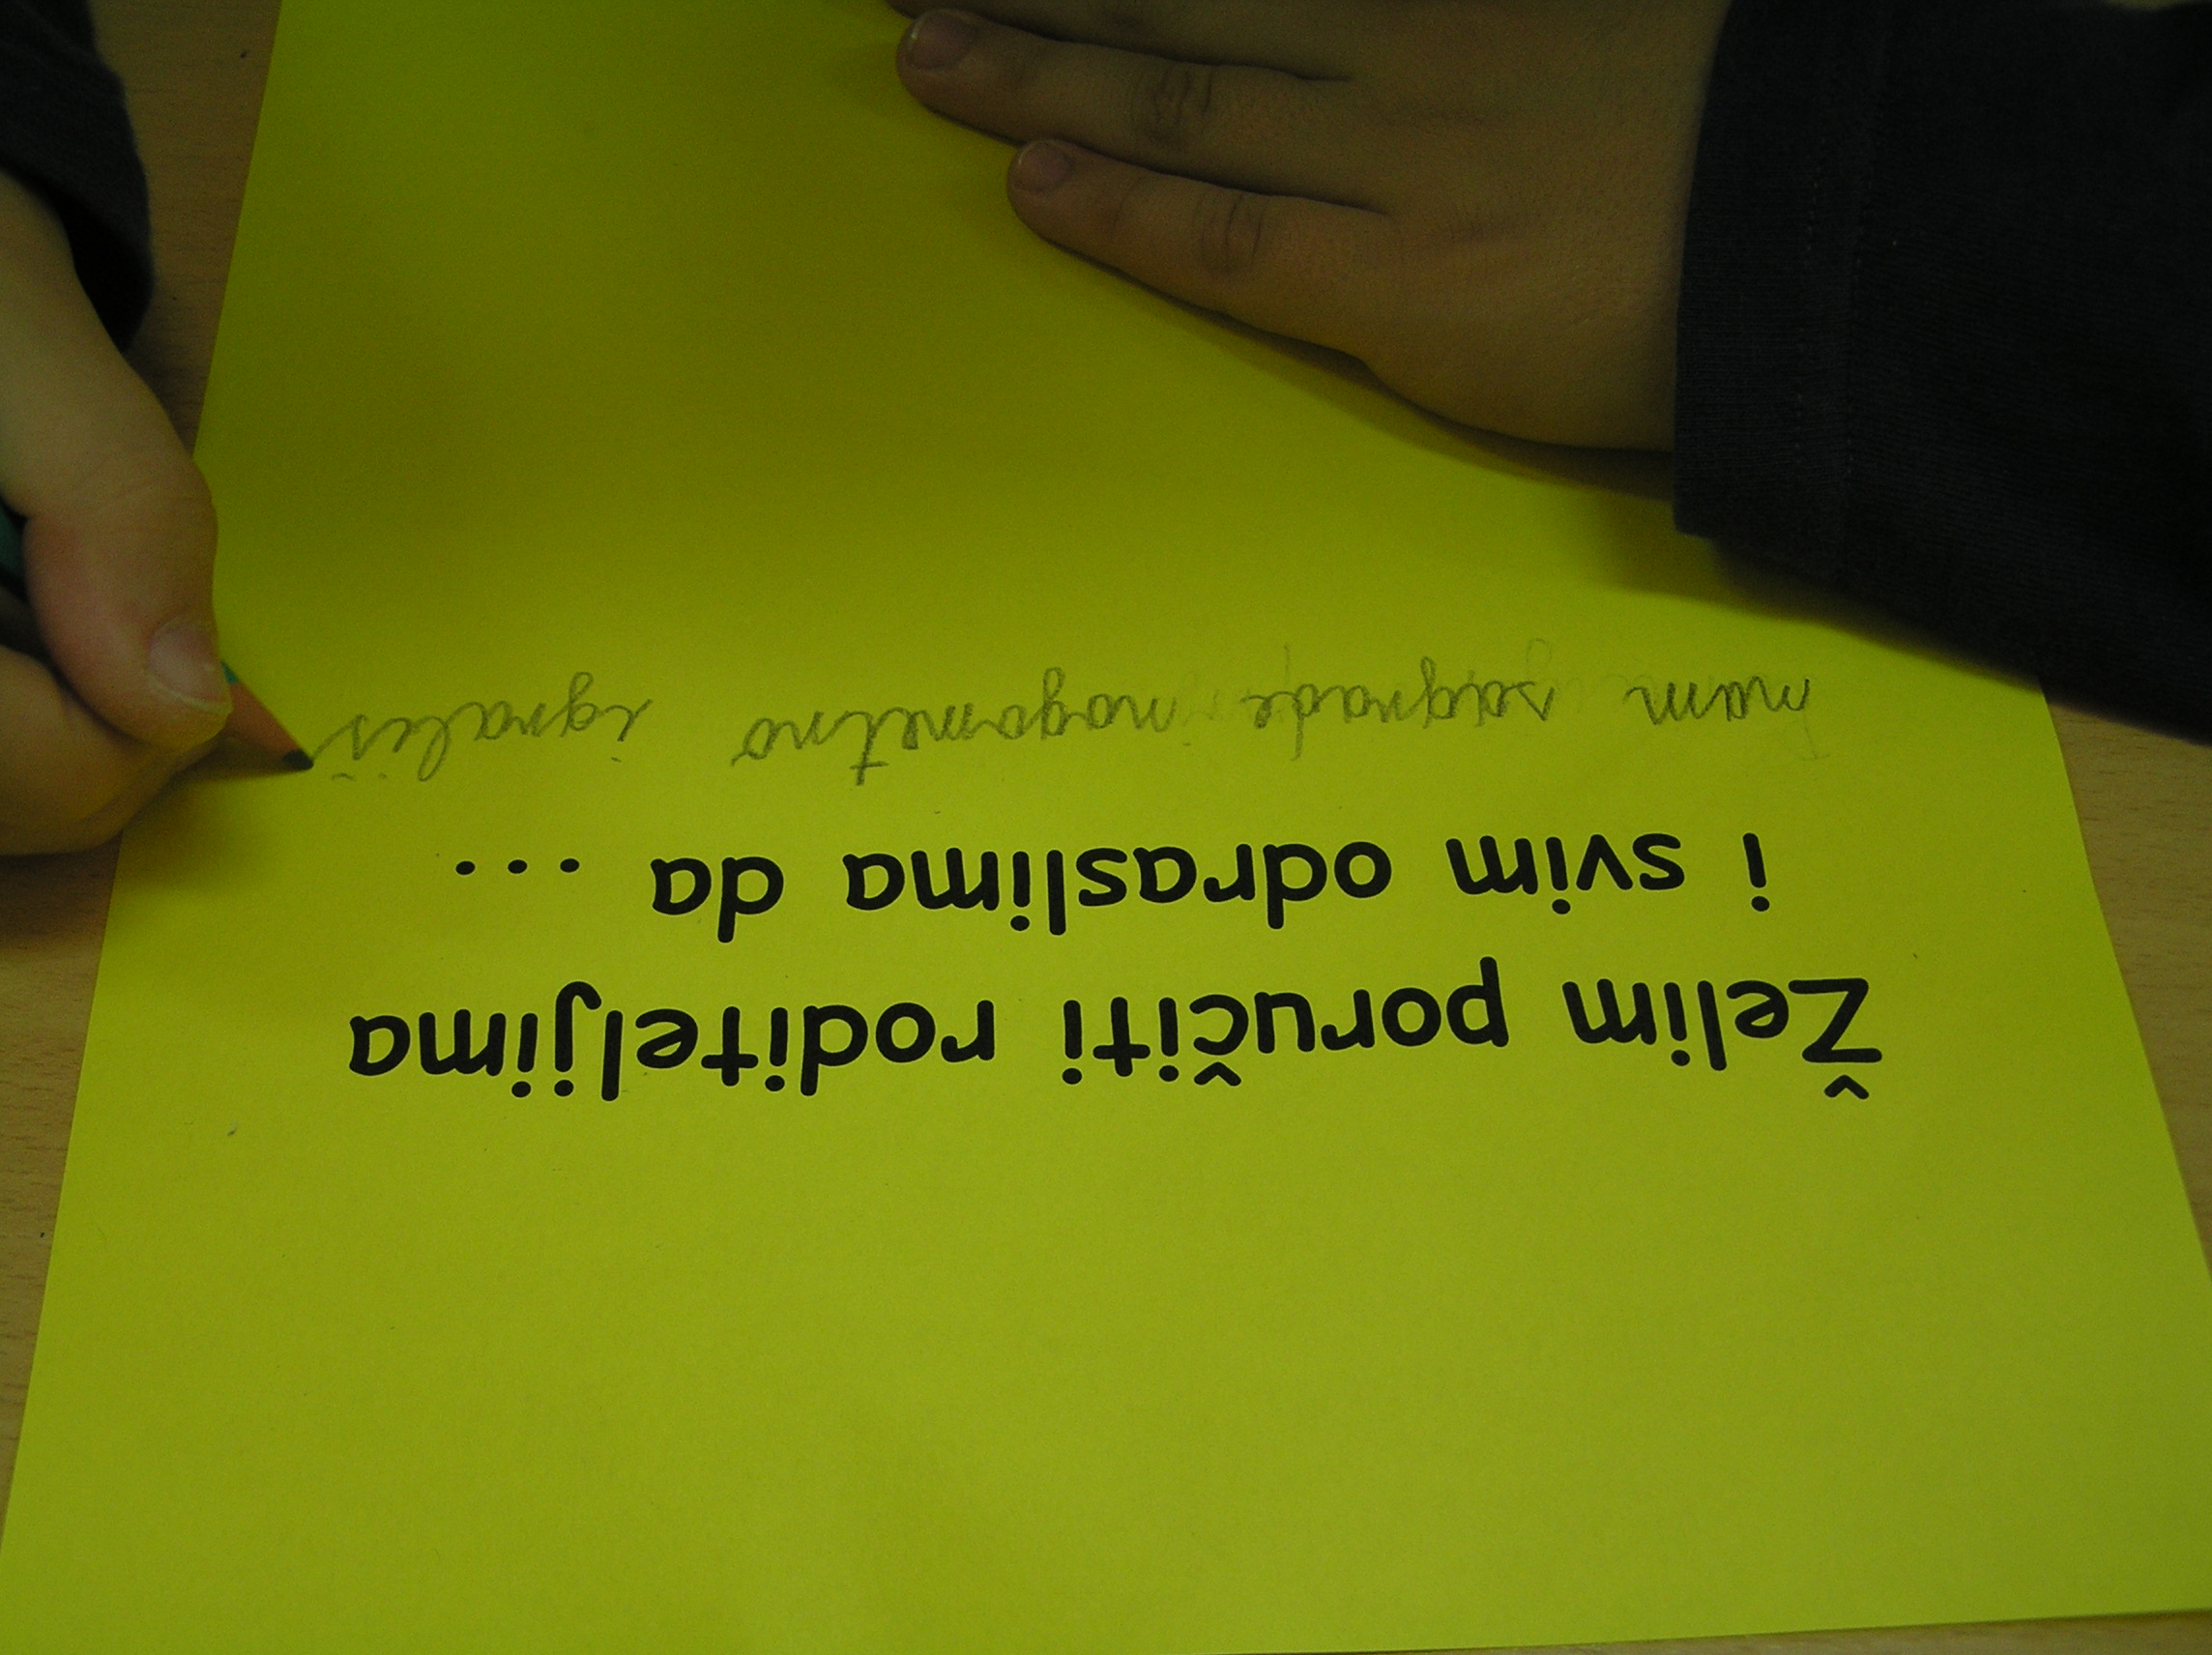 Želim poručiti roditeljima
i svim odraslima da ...
nam sagrade nogometno igrališ